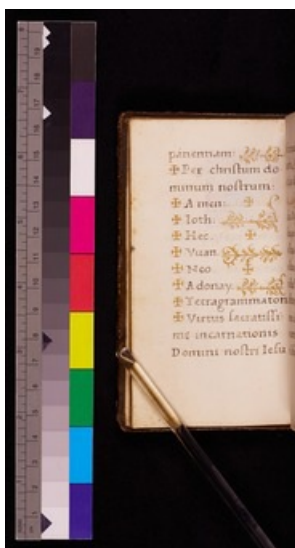 ☩ Per christum do
minum nostrum:
☩ Amen: ☩
☩ Ioth:
☩ Hec. ☩
☩ Yuan.
☩ Neo ☩
☩ Adonay.
☩ Tetragrammaton
☩ Virtus sacratissi
me incarnationis
Domini nostri Iesu